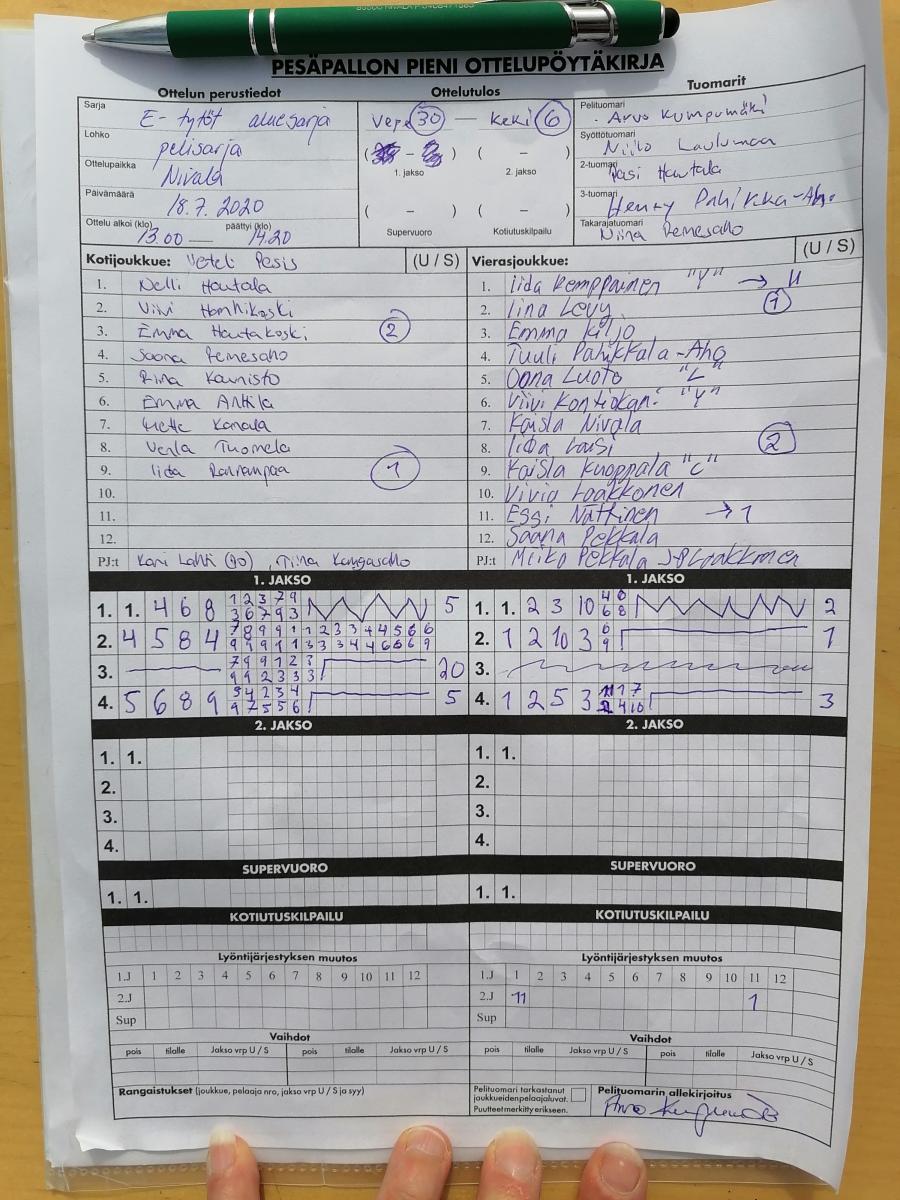 PESÄPALLON PIENI OTTELUPÖYTÄKIRJA
Ottelun perustiedot
Sarja E-tytöt aluesarja
Lohko pelisarja
Ottelupaikka Nivala
Päivämäärä 18.7.2020
Ottelu alkoi (klo) 13.00 — päättyi (klo) 14.20
Ottelutulos
VePe 30 — KeKi 6
( – ) ( – )
1. jakso 2. jakso
( – ) ( – )
Supervuoro Kotiutuskilpailu
Tuomarit
Pelituomari Arvo Kumpumäki
Syöttötuomari Niilo Laulumaa
2-tuomari Pasi Hautala
3-tuomari Henry Pahikka-Aho
Takarajatuomari Niina Remesaho
Kotijoukkue: Veteli Pesis (U / S)
1. Nelli Hautala
2. Viivi Honhikoski
3. Emma Hautakoski 2
4. Saana Remesaho
5. Riina Kaunisto
6. Emma Anttila
7. Mette Kamala
8. Venla Tuomela
9. Iida 1
10.
11.
12.
PJ:t Kari Lahti (10), Tiina Kangasaho
Vierasjoukkue: (U / S)
1. Iida Kemppainen "Y" → 11
2. Iina Levy 1
3. Emma Kiljo
4. Tuuli Pahikkala-Aho
5. Oona Luoto "L"
6. Viivi Kontiokari "Y"
7. Kaisla Nivala
8. Iida 2
9. Kaisla Kuoppala "C"
10. Laakkonen
11. Essi Nättinen → 1
12. Saana Pekkala
PJ:t Pekkala J-P Laakkonen
1. JAKSO
1. 1. 4 6 8 1 2 3 7 9 5
3 6 7 9 3
2. 4 5 8 4 7 8 9 9 1 1 2 3 3 4 4 5 6 6
9 9 9 1 1 3 3 3 4 4 6 6 6 9
3. 7 9 9 1 2 3 20
9 9 2 3 3 3
4. 5 6 8 9 9 4 2 3 4 5
9 7 5 5 6
1. JAKSO
1. 1. 2 3 10 4 6 2
6 8
2. 1 2 10 3 6 1
9
3.
4. 1 2 5 3 11 1 7 3
2 4 10
2. JAKSO
1. 1.
2.
3.
4.
2. JAKSO
1. 1.
2.
3.
4.
SUPERVUORO
1. 1.
SUPERVUORO
1. 1.
KOTIUTUSKILPAILU
KOTIUTUSKILPAILU
Lyöntijärjestyksen muutos
1.J 1 2 3 4 5 6 7 8 9 10 11 12
2.J
Sup
Lyöntijärjestyksen muutos
1.J 1 2 3 4 5 6 7 8 9 10 11 12
2.J 11 1
Sup
Vaihdot
pois tilalle Jakso vrp U / S pois tilalle Jakso vrp U / S
Vaihdot
pois tilalle Jakso vrp U / S pois tilalle Jakso vrp U / S
Rangaistukset (joukkue, pelaaja nro, jakso vrp U / S ja syy)
Pelituomari tarkastanut
joukkueidenpelaajaluvat.
Puutteetmerkittyerikseen.
Pelituomarin allekirjoitus